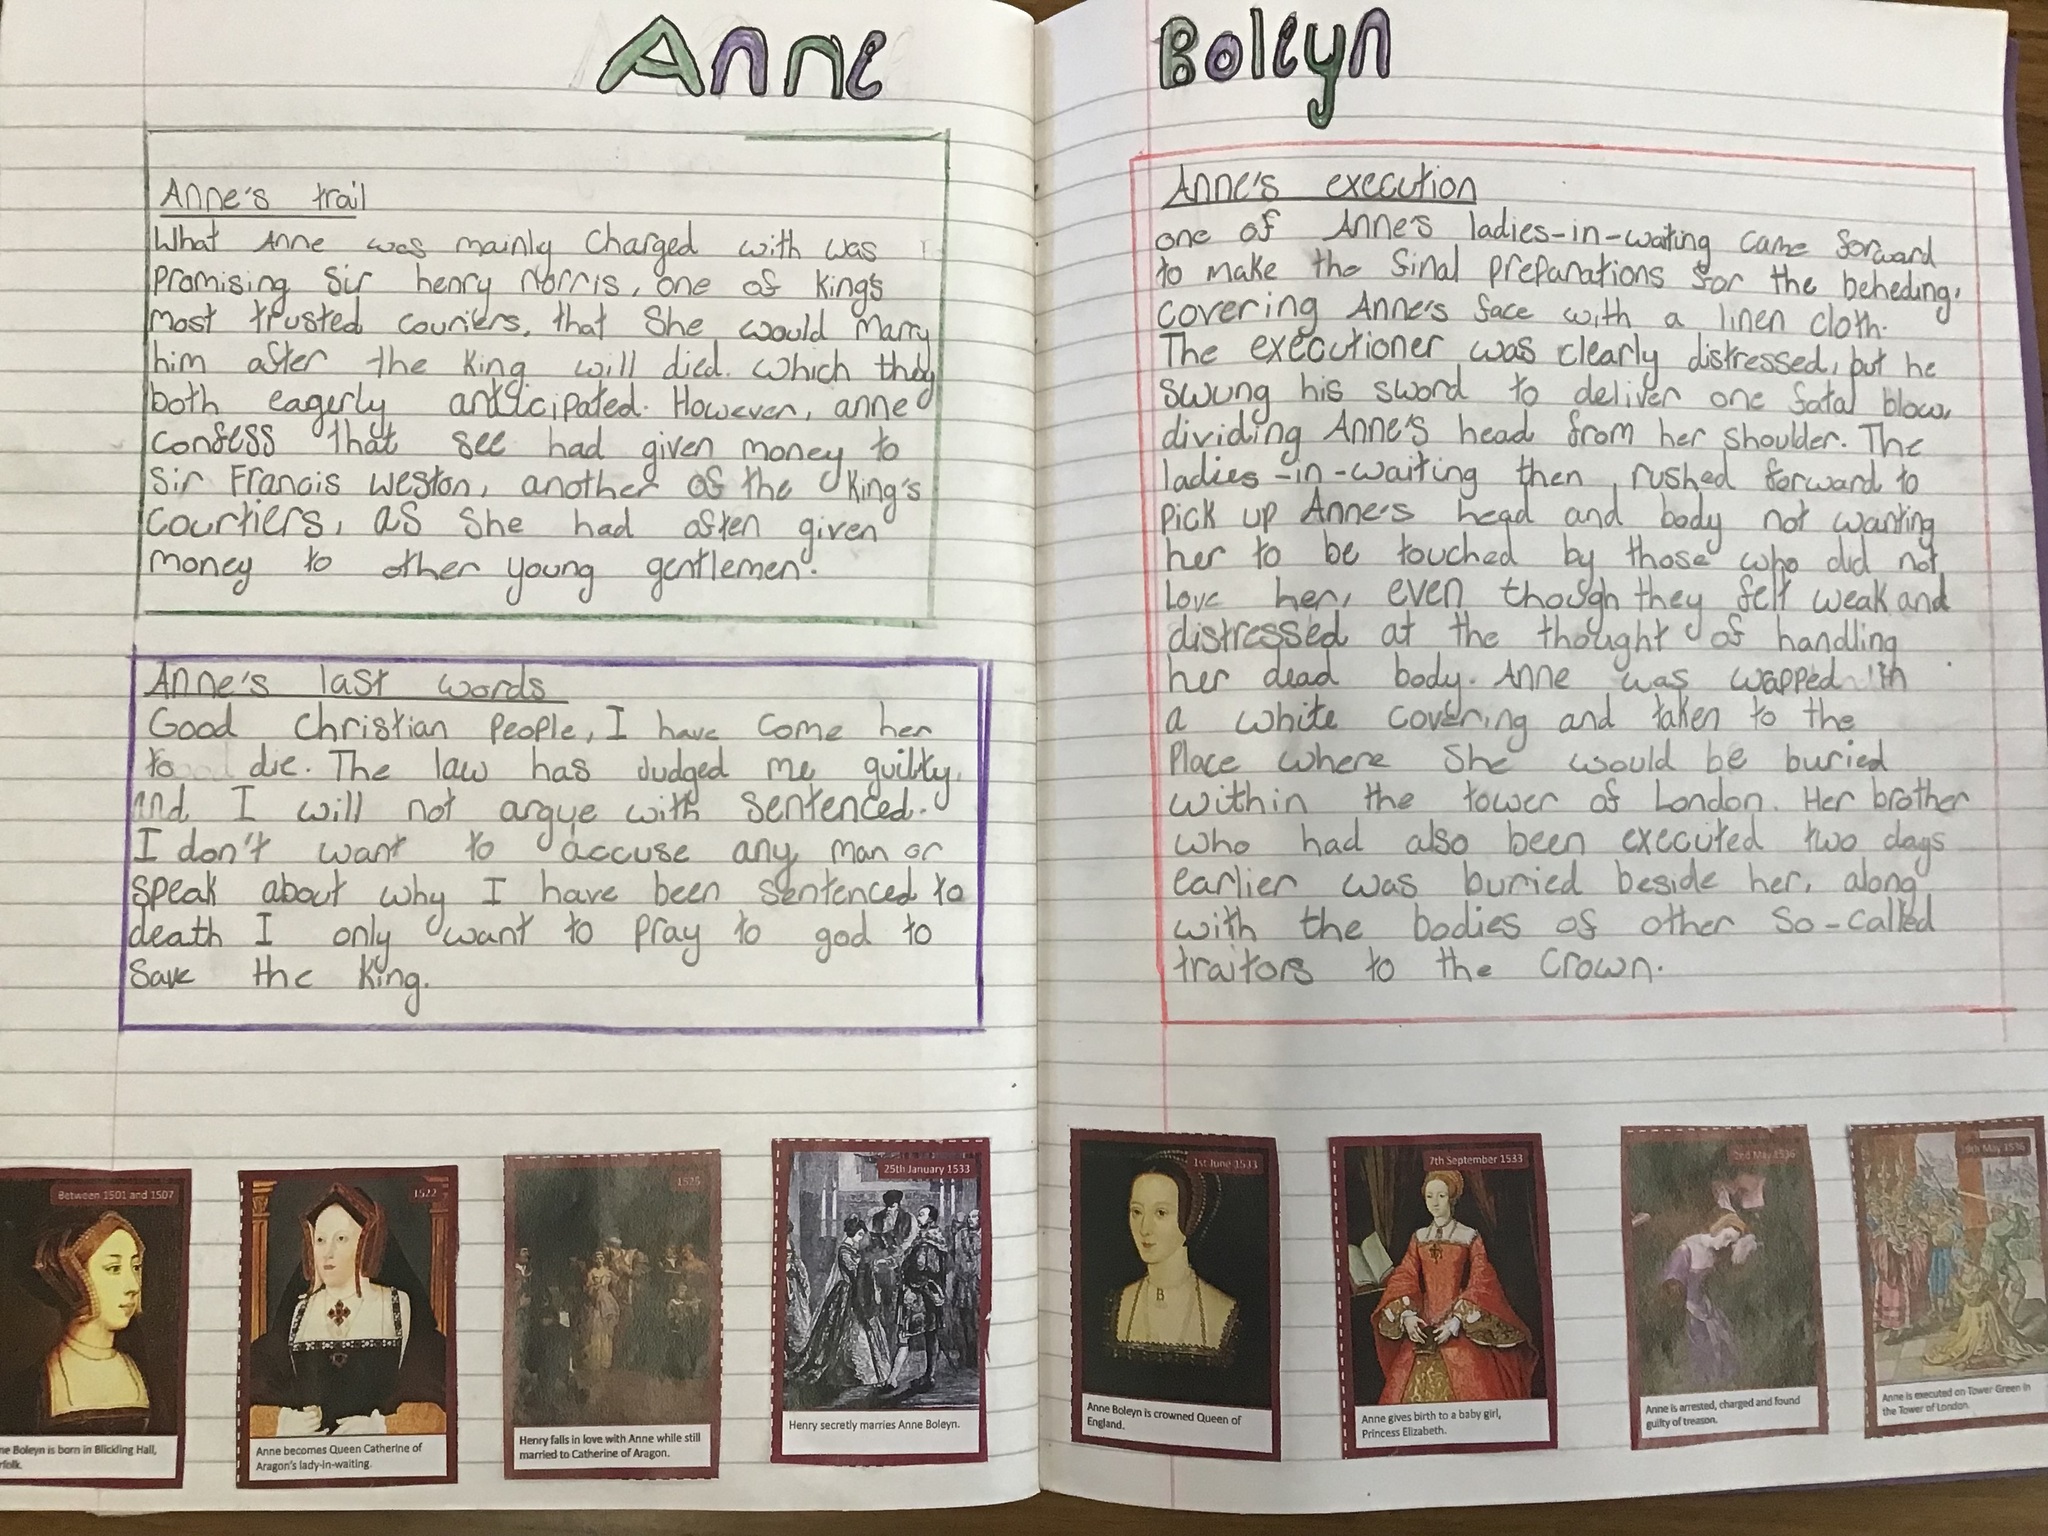 Anne Boleyn
Anne's trail
What Anne was mainly charged with was
promising Sir henry Norris, one of King's
most trusted couriers, that she would marry
him after the King will died. Which they
both eagerly anticipated. However, anne
confess that see had given money to
Sir Francis Weston, another of the King's
courtiers, as she had often given
money to other young gentlemen.
Anne's last words
Good Christian People, I have come her
to die. The law has Judged me guilty,
and I will not argue with sentenced.
I don't want to accuse any man or
speak about why I have been sentenced to
death I only want to pray to god to
save the King.
Anne's execution
one of Anne's ladies-in-waiting came forward
to make the final preparations for the beheding,
covering Anne's face with a linen cloth.
The executioner was clearly distressed, but he
swung his sword to deliver one fatal blow,
dividing Anne's head from her shoulder. The
ladies-in-waiting then rushed forward to
pick up Anne's head and body not wanting
her to be touched by those who did not
love her, even though they felt weak and
distressed at the thought of handling
her dead body. Anne was wapped ith
a white covering and taken to the
place where she would be buried
within the tower of London. Her brother
who had also been executed two days
earlier was buried beside her, along
with the bodies of other so-called
traitors to the Crown.
Between 1501 and 1507
ne Boleyn is born in Blickling Hall,
rfolk.
1522
Anne becomes Queen Catherine of
Aragon's lady-in-waiting.
1525
Henry falls in love with Anne while still
married to Catherine of Aragon.
25th January 1533
Henry secretly marries Anne Boleyn.
1st June 1533
Anne Boleyn is crowned Queen of
England.
7th September 1533
Anne gives birth to a baby girl,
Princess Elizabeth.
2nd May 1536
Anne is arrested, charged and found
guilty of treason.
19th May 1536
Anne is executed on Tower Green in
the Tower of London.